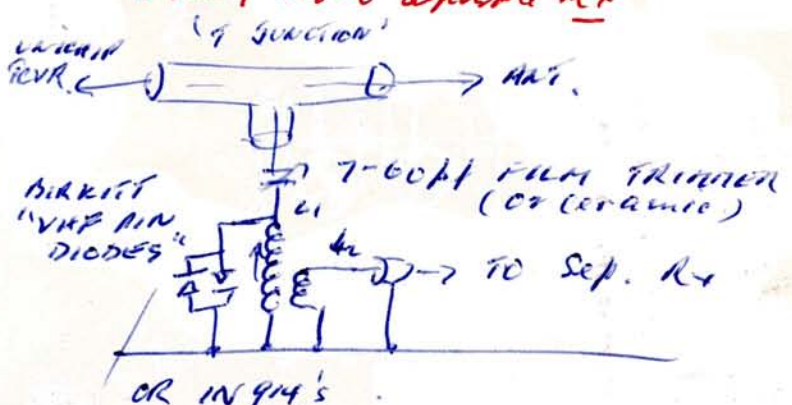 separate Rx
'T JUNCTION'
TCVR.
ANT.
7-60pf FILM TRIMMER
(or ceramic)
L1
BIRKITT
"VHF PIN
DIODES"
L2
TO Sep. Rx
OR IN914's.